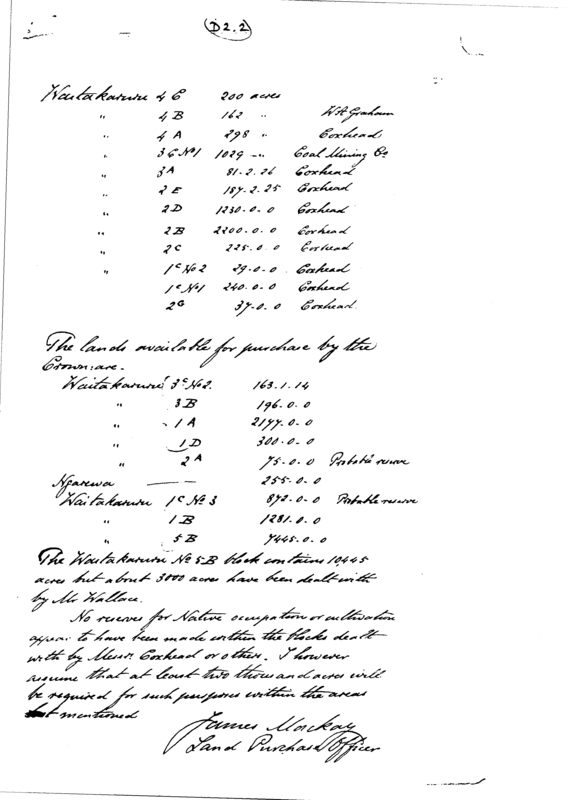 D2.2
Waitakaruru 4 C 200 acres
" 4 B 162 " W A Graham
" 4 A 298 " Coxhead
" 3 C No 1 1029 -"- Coal Mining Co
" 3 A 81-2-26 Coxhead
" 2 E 187-2-25 Coxhead
" 2 D 1230-0-0 Coxhead
" 2 B 2200-0-0 Coxhead
" 2 C 225-0-0 Coxhead
" 1c No 2 29-0-0 Coxhead
1c No 1 240-0-0 Coxhead
2 G 37-0-0 Coxhead
The lands available for purchase by the
Crown are -
Waitakaruru 3c No 2. 163.1.14
" 3 B 196.0.0
" 1 A 2177.0-0
" 1 D 300.0-0
" 2 A 75-0-0 Probable reserve
Ngarewa —— 255.0-0
Waitakaruru 1c No 3 872.0-0 Probable reserve
" 1 B 1281.0.0
" 5 B 7445.0.0
The Waitakaruru No 5B block contains 10445
acres but about 3000 acres have been dealt with
by Mr Wallace.
No reserves for Native occupation or cultivation
appear to have been made within the blocks dealt
with by Messrs Coxhead or others. I however
assume that at least two thousand acres will
be required for such purposes within the areas
last mentioned
James Mackay
Land Purchase Officer